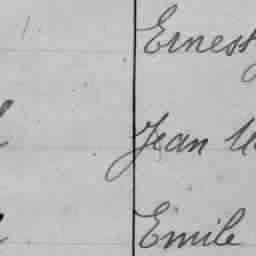 Ernest
Jean
Emile